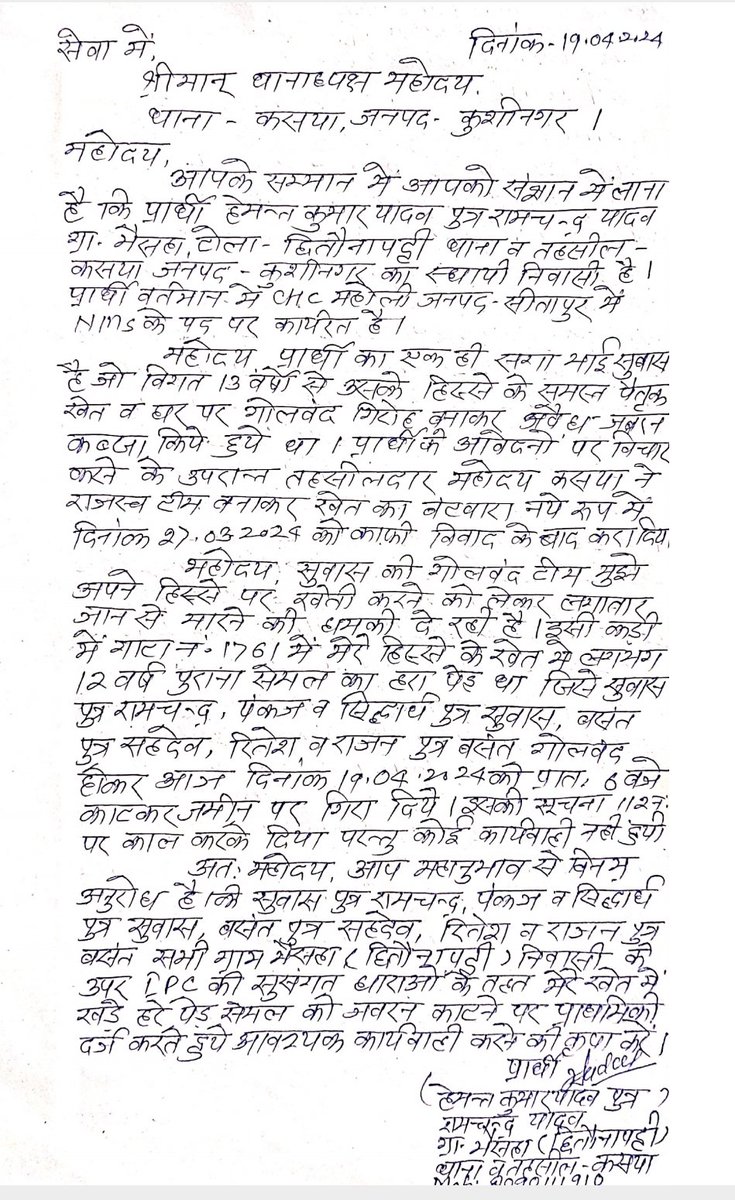 सेवा में, दिनांक-19.04.2024
श्रीमान् थानाध्यक्ष महोदय,
थाना - कसया, जनपद- कुशीनगर ।
महोदय,
आपके सम्मान में आपको संज्ञान में लाना
है कि प्रार्थी हेमन्त कुमार यादव पुत्र रामचन्द्र यादव
ग्रा. भैसहा, टोला - द्दितौनापट्टी थाना व तहसील -
कसया जनपद - कुशीनगर का स्थायी निवासी है।
प्रार्थी वर्तमान में CHC महोली जनपद-सीतापुर में
NMS के पद पर कार्यरत है।
महोदय, प्रार्थी का एक ही सगा भाई सुवास
है जो विगत 13 वर्षों से उसके हिस्से के समस्त पैतृक
खेत व घर पर गोलवंद गिरोह बनाकर अवैध जबरन
कब्जा किये हुये था। प्रार्थी के आवेदनों पर विचार
करने के उपरान्त तहसीलदार महोदय कसया ने
राजस्व टीम बनाकर खेत का बंटवारा नये रूप में
दिनांक 27.03.2024 को काफी विवाद के बाद करा दिये,
महोदय, सुवास की गोलवंद टीम मुझे
अपने हिस्से पर खेती करने को लेकर लगातार
जान से मारने की धमकी दे रही है। इसी कड़ी
में गाटा नं.-1761 में मेरे हिस्से के खेत में लगभग
12 वर्ष पुराना सेमल का हरा पेड़ था जिसे सुवास
पुत्र रामचन्द्र, पंकज व सिद्धार्थ पुत्र सुवास, बसंत
पुत्र सहदेव, रितेश व राजन पुत्र बसंत गोलवंद
होकर आज दिनांक 19.04.2024 को प्रात: 6 बजे
काटकर जमीन पर गिरा दिये। इसकी सूचना 112 नं.
पर काल करके दिया परन्तु कोई कार्यवाही नहीं हुयी
अत: महोदय, आप महानुभाव से विनम्र
अनुरोध है कि सुवास पुत्र रामचन्द्र, पंकज व सिद्धार्थ
पुत्र सुवास, बसंत पुत्र सहदेव, रितेश व राजन पुत्र
बसंत सभी ग्राम भैसहा (द्दितौनापट्टी) निवासी के
उपर IPC की सुसंगत धाराओं के तहत मेरे खेत में
खड़े हरे पेड़ सेमल को जबरन काटने पर प्राथमिकी
दर्ज करते हुये आवश्यक कार्यवाही करने की कृपा करें।
प्रार्थी
(हेमन्त कुमार यादव पुत्र)
रामचन्द्र यादव
ग्रा. भैसहा (द्दितौनापट्टी)
थाना व तहसील - कसया